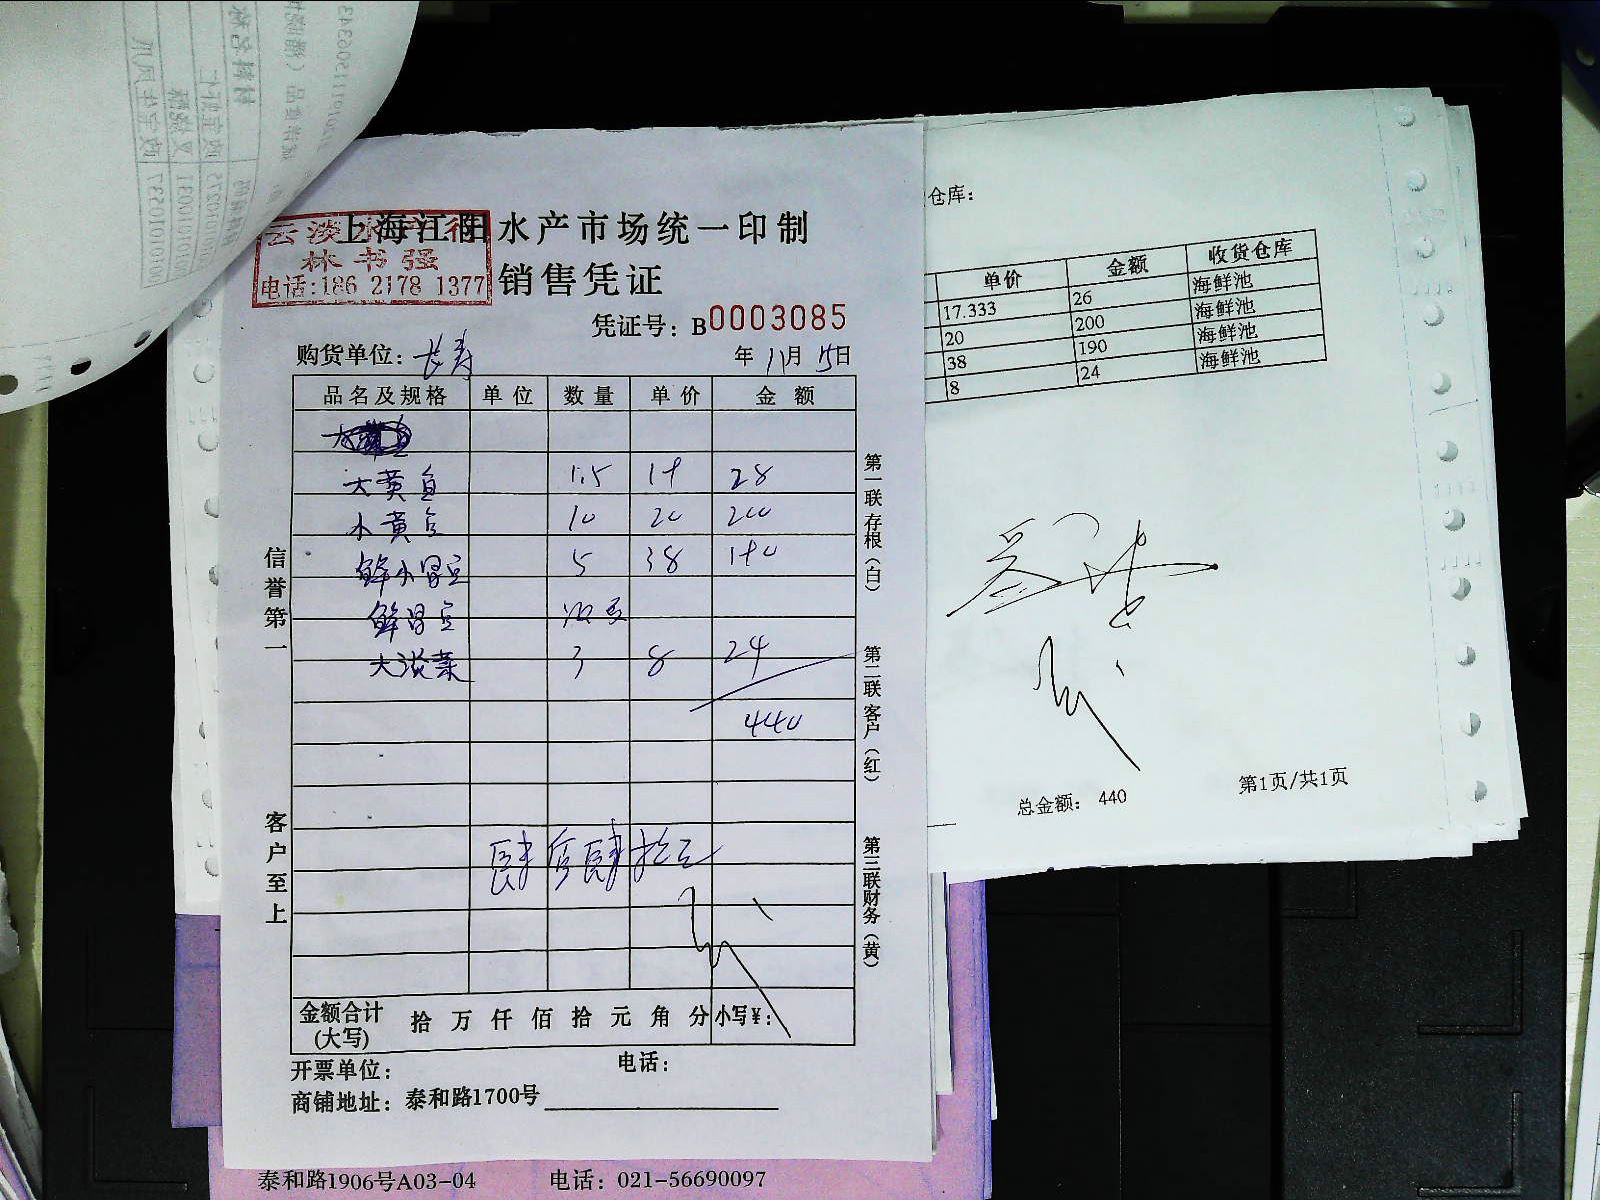 上海江阳水产市场统一印制
云淡水产行
林书强
电话:186 2178 1377
销售凭证
凭证号: B0003085
购货单位: 长寿 年 11月 15日
品名及规格 单位 数量 单价 金额
大黄鱼 1.5 19 28
小黄鱼 10 20 200
鲜小昌鱼 5 38 190
鲜昌鱼
大淡菜 3 8 24
440
肆佰肆拾元
金额合计(大写) 拾 万 仟 佰 拾 元 角 分 小写¥:
开票单位: 电话:
商铺地址: 泰和路1700号
信誉第一
客户至上
第一联 存根(白)
第二联 客户(红)
第三联 财务(黄)
仓库:
单价 金额 收货仓库
17.333 26 海鲜池
20 200 海鲜池
38 190 海鲜池
8 24 海鲜池
总金额: 440
第1页/共1页
泰和路1906号A03-04 电话: 021-56690097